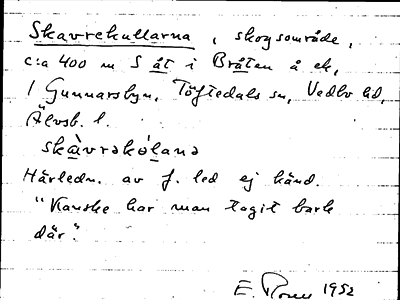 Skavrekullarna, skogsområde,
c:a 400 m S åt i Bråten å ek,
/ Gunnarsbyn, Töftedals sn, Vedbo hd,
Älvsb. l.
skàvrəkóˈlanə
Härledn. av f. led ej känd.
"Kanske har man tagit bark
där".
E. 1952